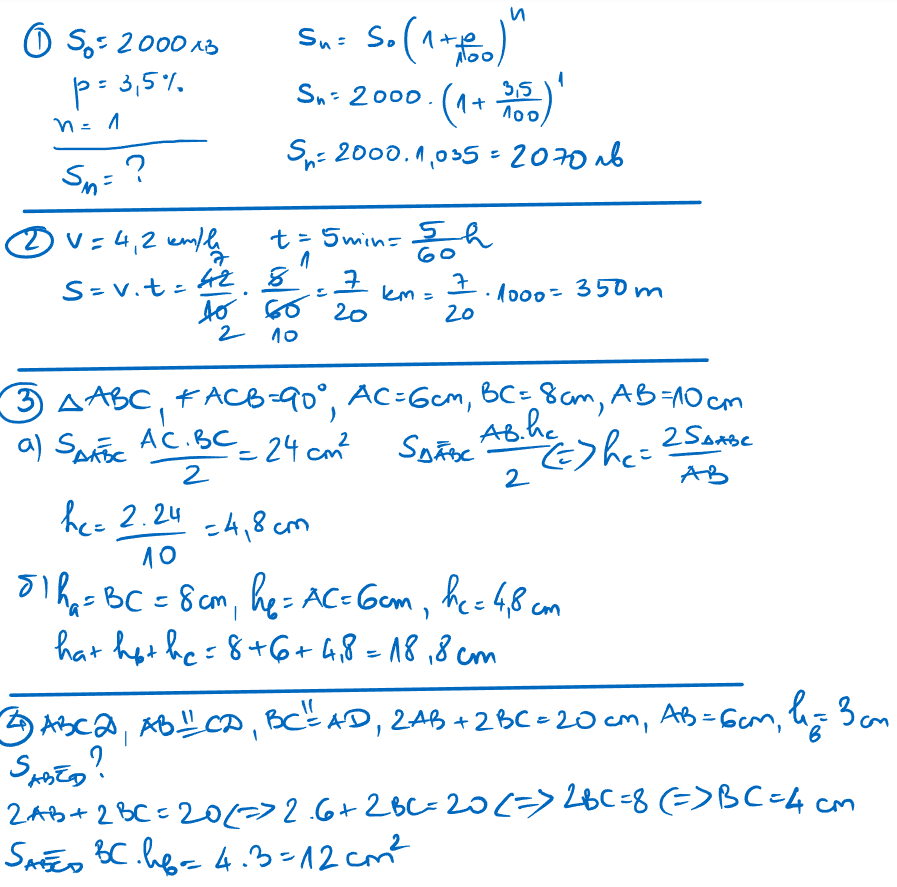 ① S₀ = 2000 лв Sₙ = S₀(1 + p/100)ⁿ
p = 3,5% Sₙ = 2000 . (1 + 3,5/100)¹
n = 1
Sₙ = ? Sₙ = 2000 . 1,035 = 2070 лв
② v = 4,2 km/h t = 5 min = 5/60 h
S = v . t = 42/10 . 5/60 = 7/20 km = 7/20 . 1000 = 350 m
③ △ABC, ∢ACB = 90°, AC = 6cm, BC = 8cm, AB = 10 cm
а) S△ABC = AC . BC/2 = 24 cm² S△ABC = AB . hc/2 <=> hc = 2S△ABC/AB
hc = 2 . 24/10 = 4,8 cm
б) ha = BC = 8cm, hв = AC = 6cm, hc = 4,8 cm
ha + hв + hc = 8 + 6 + 4,8 = 18,8 cm
④ ABCD, AB ∥= CD, BC ∥= AD, 2AB + 2BC = 20 cm, AB = 6cm, hв = 3 cm
SABCD = ?
2AB + 2BC = 20 <=> 2 . 6 + 2BC = 20 <=> 2BC = 8 <=> BC = 4 cm
SABCD = BC . hв = 4 . 3 = 12 cm²